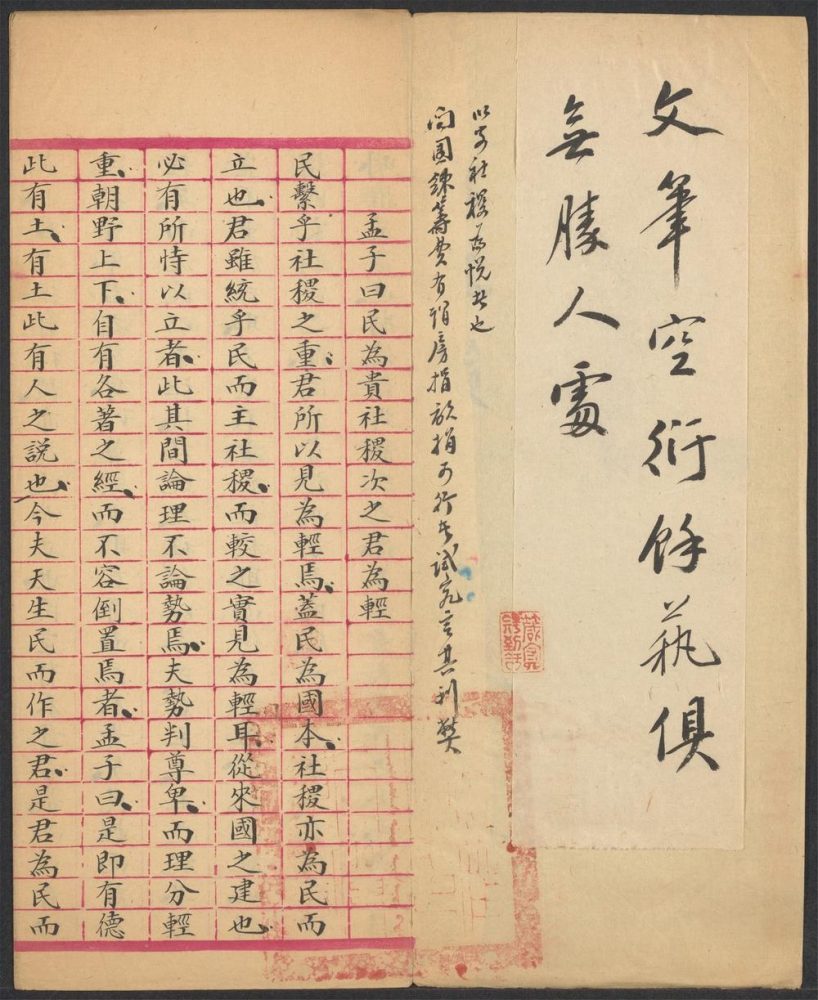 文筆空衍餘蓺俱
無勝人處
以安社稷為悦者也
問團練籌費有謂房捐畝捐可行者試究言其利弊
孟子曰民為貴社稷次之君為輕
民繫乎社稷之重君所以見為輕焉蓋民為國本社稷亦為民而
立也君雖統乎民而主社稷而較之實見為輕耳從來國之建也
必有所恃以立者此其間論理不論勢焉夫勢判尊卑而理分輕
重朝野上下自有各著之經而不容倒置焉者孟子曰是即有德
此有土有土此有人之説也今夫天生民而作之君是君為民而